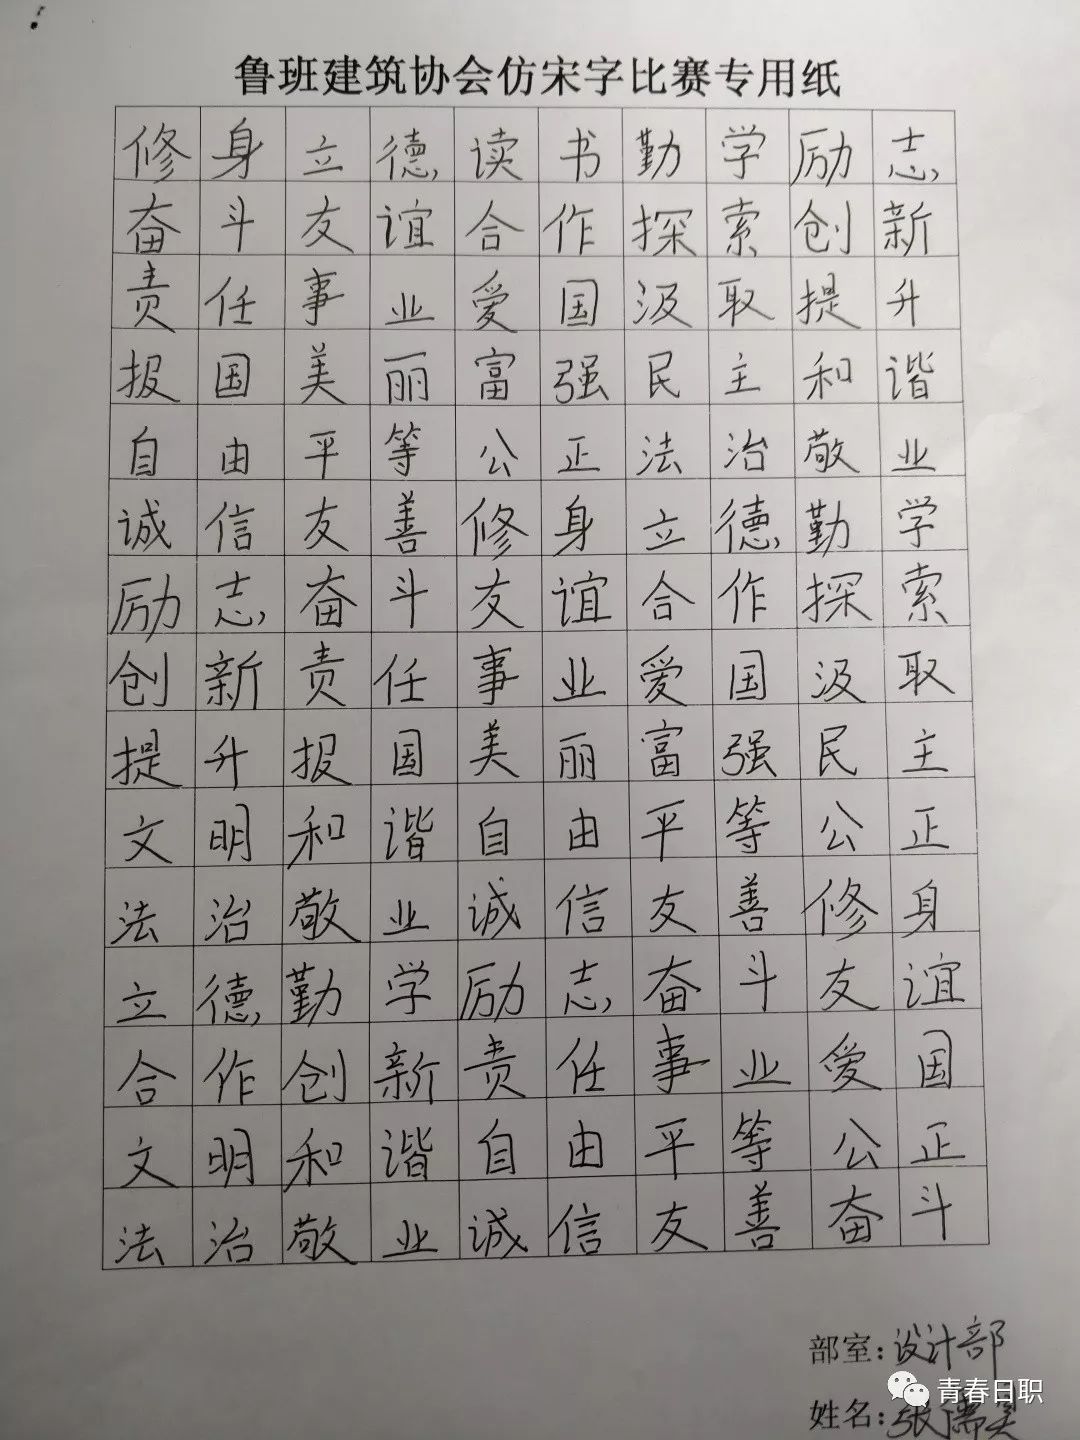 鲁班建筑协会仿宋字比赛专用纸
修身立德读书勤学励志
奋斗友谊合作探索创新
责任事业爱国汲取提升
报国美丽富强民主和谐
自由平等公正法治敬业
诚信友善修身立德勤学
励志奋斗友谊合作探索
创新责任事业爱国汲取
提升报国美丽富强民主
文明和谐自由平等公正
法治敬业诚信友善修身
立德勤学励志奋斗友谊
合作创新责任事业爱国
文明和谐自由平等公正
法治敬业诚信友善奋斗
部室:设计部
青春日职
姓名:张儒